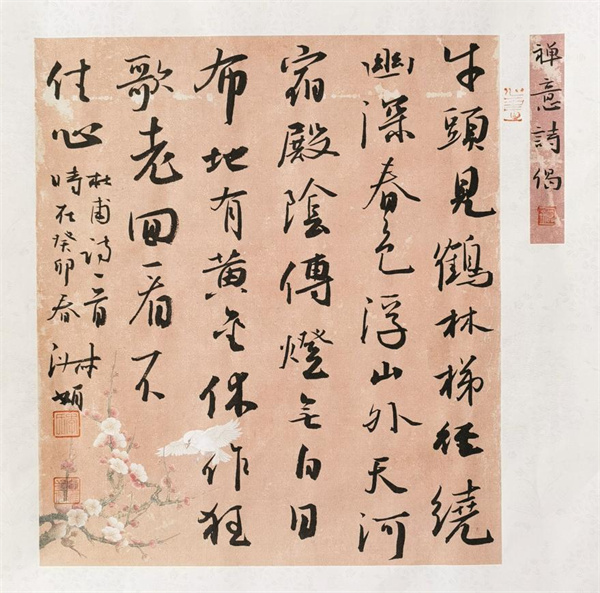 禅意詩偈
牛頭見鶴林梯径繞
幽深春色浮山外天河
宿殿陰傳燈无白日
布地有黄金休作狂
歌老回看不
住心
杜甫诗一首
時在癸卯春